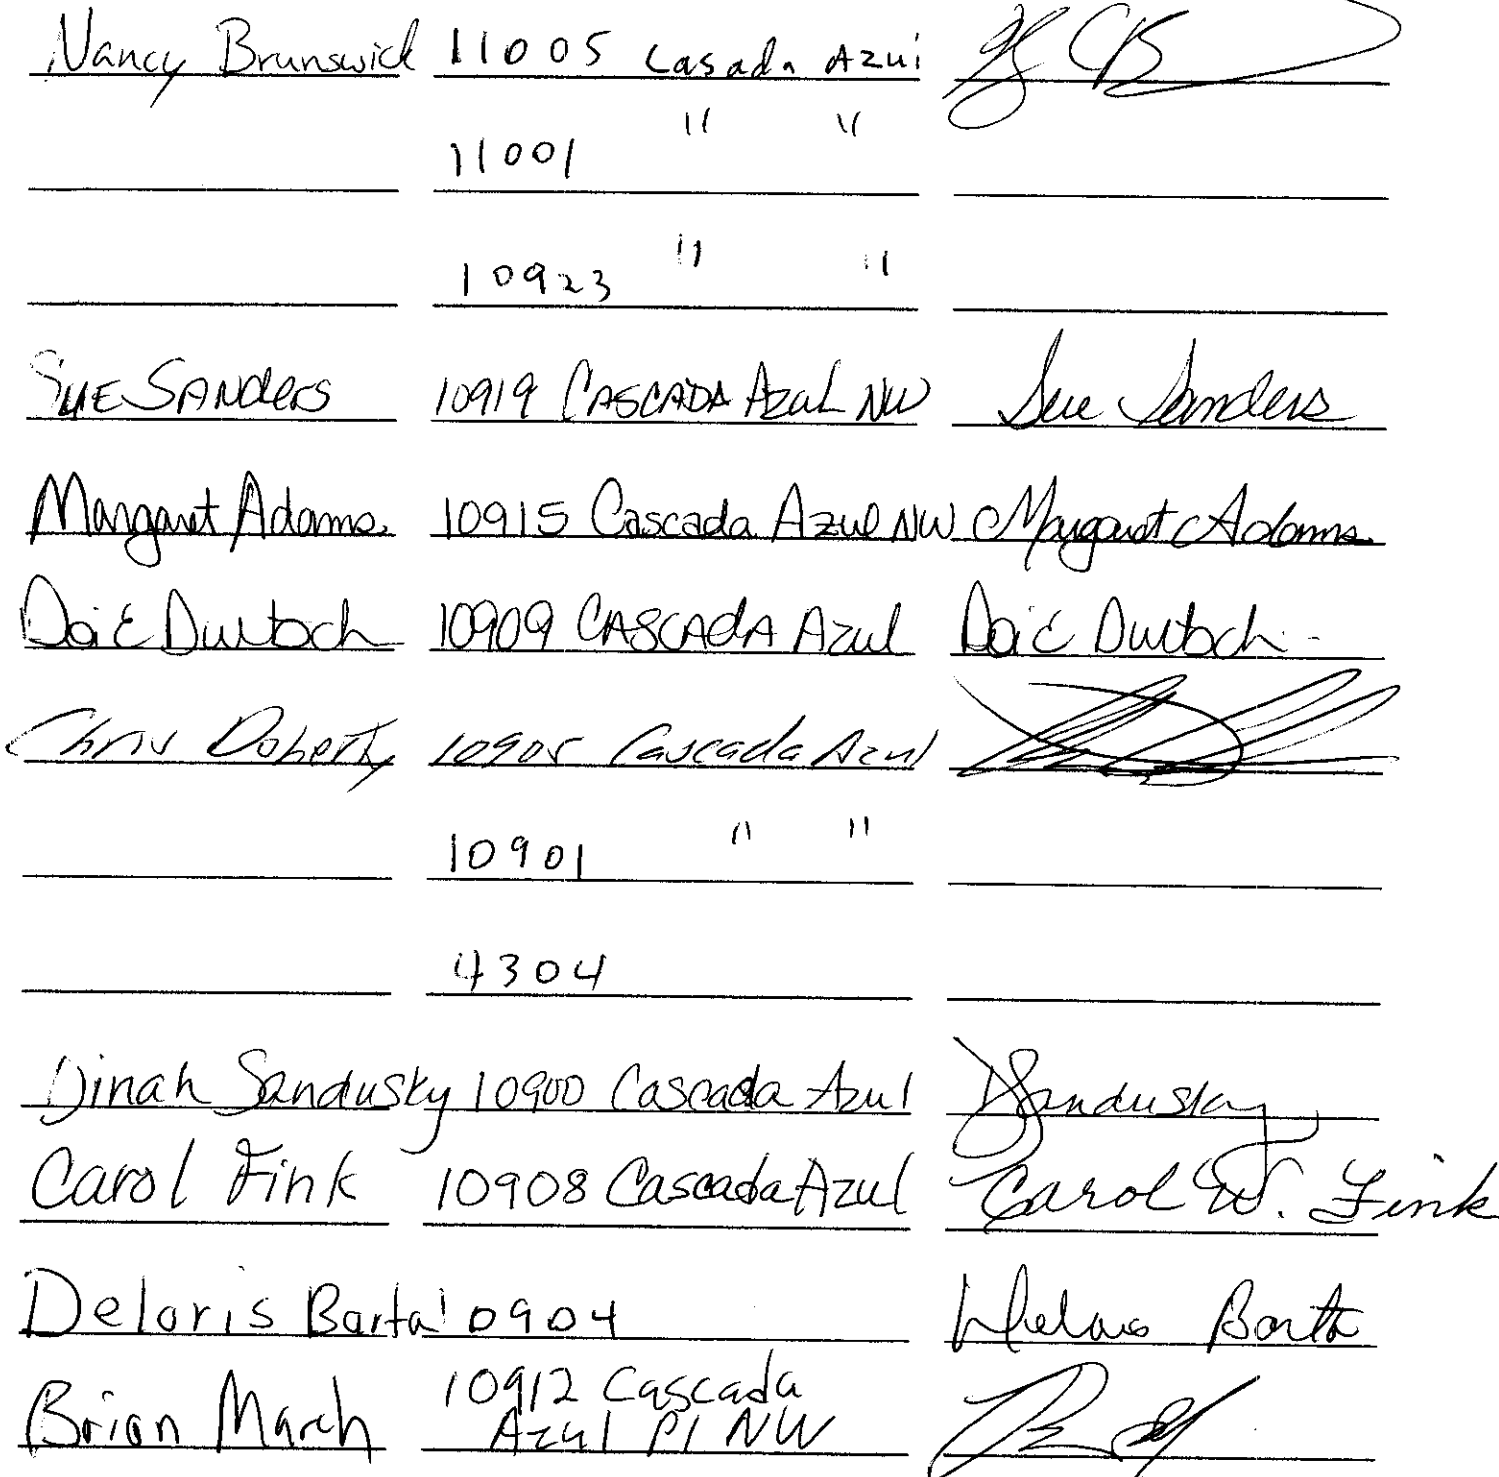 Nancy Brunswick 11005 Casada Azui
11001 " "
10923 " "
SUE SANders 10919 CASCADA AzuL NW Sue Sanders
Margaret Adams 10915 Cascada Azul NW Margaret Adams
10909 CASCAdA Azul
Chris Doherty 10905 Cascada Azul
10901 " "
4304
Dinah Sandusky 10900 Cascada Azul DSandusky
Carol Fink 10908 Cascada Azul Carol W. Fink
Deloris Barta 10904
Brian March 10912 Cascada
Azul Pl NW